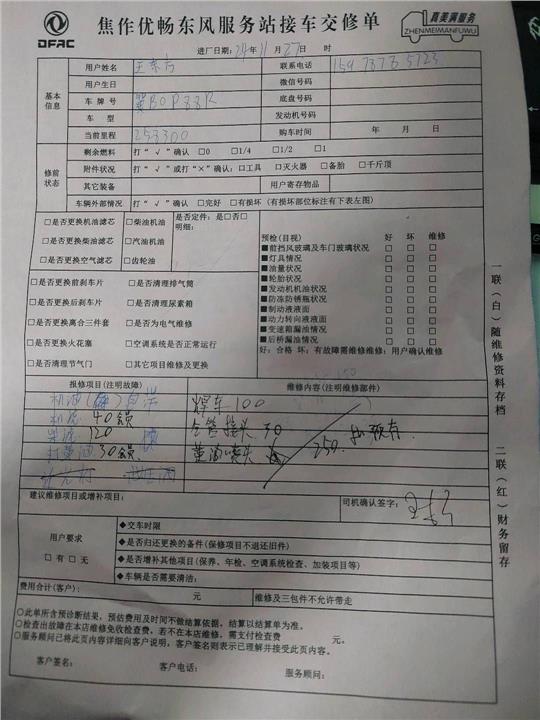 DFAC
焦作优畅东风服务站接车交修单
真美满服务
ZHENMEIMANFUWU
进厂日期：24年11月27日 时
基本信息
用户姓名 联系电话
用户生日 微信号码
车牌号 冀B0P88R 底盘号码
车型 发动机号码
当前里程 253300 购车时间 年 月 日
修前状态
剩余燃料 打“√”确认 □0 □1/4 □1/2 □1
附件状况 打“√”或打“×”确认：□工具 □灭火器 □备胎 □千斤顶
其它装备 用户寄存物品
车辆外部情况 打“√”确认 □完好 □有损坏（有损坏部位标注有下表左图）
□是否更换机油滤芯 □柴油机油 是否定件：是□否□
明细：
□是否更换柴油滤芯 □汽油机油
□是否更换空气滤芯 □齿轮油
□是否更换前刹车片 □是否清理排气筒
□是否更换后刹车片 □是否清理尿素箱
□是否更换离合三件套 □是否为电气维修
□是否更换火花塞 □空调系统是否正常运行
□是否清理节气门 □其它项目维修及更换
预检(目视) 好 坏 维修
■前挡风玻璃及车门玻璃状况 □ □ □
■灯具情况 □ □ □
■油量状况 □ □ □
■轮胎状况 □ □ □
■发动机机油状况 □ □ □
■防冻防锈瓶状况 □ □ □
■制动液液面 □ □ □
■动力转向液液面 □ □ □
■变速箱漏油情况 □ □ □
■后桥漏油情况 □ □ □
好：合格 坏：有故障需维修维修：用户确认维修
报修项目(注明故障) 维修内容(注明维修部件)
焊车 100
40
120 接头 50
30 黄油嘴头 250
建议维修项目或增补项目： 司机确认签字：
用户要求
□有 □无
◆交车时限
◆是否归还更换的备件(保修项目不退还旧件)
◆是否增补其他项目(保养、年检、空调系统检查、加装项目等)
◆车辆是否需清洁：
费用合计(客户)： 元 维修及三包件不允许带走
○此单所含预诊断结果，预估费用及时间不做结算依据，结算以结算单为准。
○检查出故障在本店维修免收检查费，若不在本店维修，需支付检查费 元。
○服务顾问已将此页内容详细向客户说明，客户签名则表示已理解并接受此页内容。
客户签名： 客户电话： 服务顾问：
一联（白）随维修资料存档
二联（红）财务留存